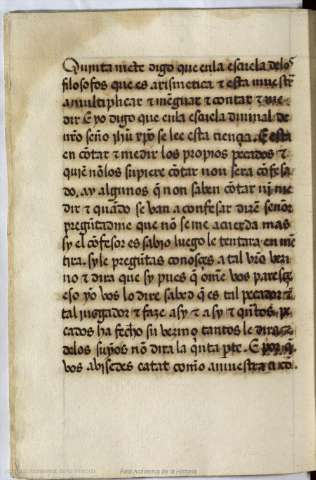 Quinta mete digo que enla escuela delos
filosofos que es arismetica & esta muestra
a multiplicar & menguar & contar & me-
dir E yo digo que enla escuela diuinal de
nro seño jhu xpo se lee esta ciençia. E esta
en cōtar & medir los propios pecados &
quiē nō los supiere cōtar non sera cōfesa
do. ay algunos q̄ non saben cōtar nj̄ me
dir & quādo se van a confesar dizē señor
pregūtadme que nō se me acuerda mas
sy el cōfesor es sabio luego le tentara en mē
tira. sy le preguntas conosçes a tal vro vezi
no & dira que sy pues q̄ ome vos paresçe
eso yo vos lo dire sabed q̄ es tal pecador &
tal jugador & faze asy & asy & quātos pe
cados ha fecho su vezino tantos le dira &
delos suyos nō dira la qnta pte. E por q̄
vos abisedes catat como amuestra a cō
Real Academia de la Historia